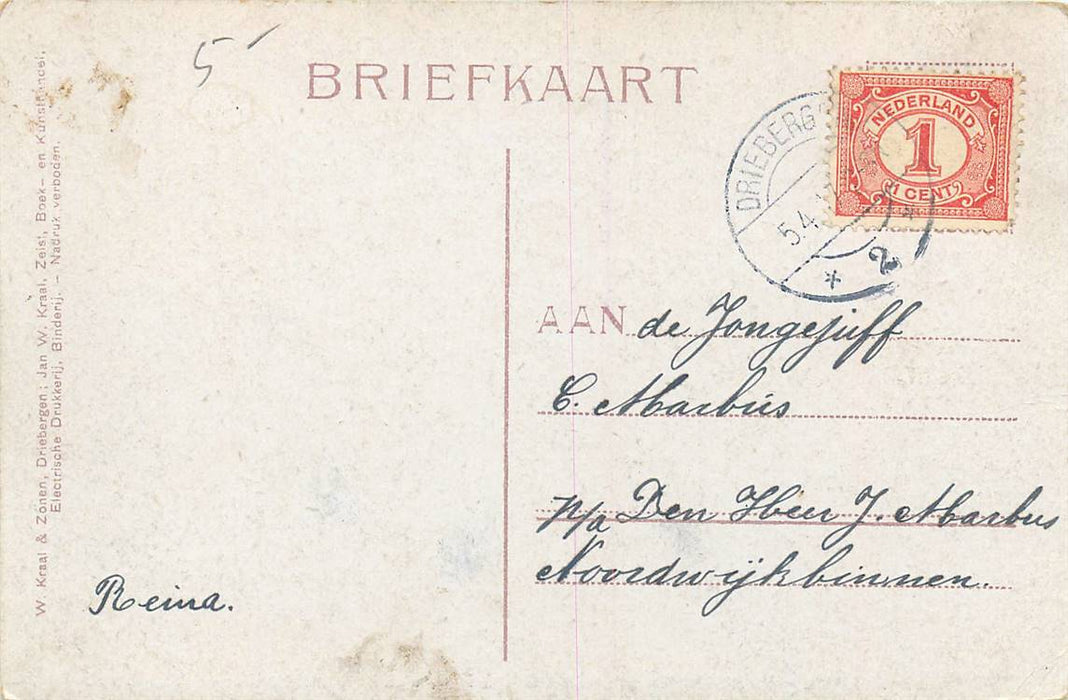 5
BRIEFKAART
NEDERLAND
1
1 CENT
DRIEBERG
5.4
* 2
AAN de Jongejuff
C. Marbus
p/a Den Heer J. Marbus
Noordwijkbinnen.
Reina.
W. Kraal & Zonen, Driebergen; Jan W. Kraal, Zeist, Boek- en Kunsthandel.
Electrische Drukkerij, Binderij. — Nadruk verboden.